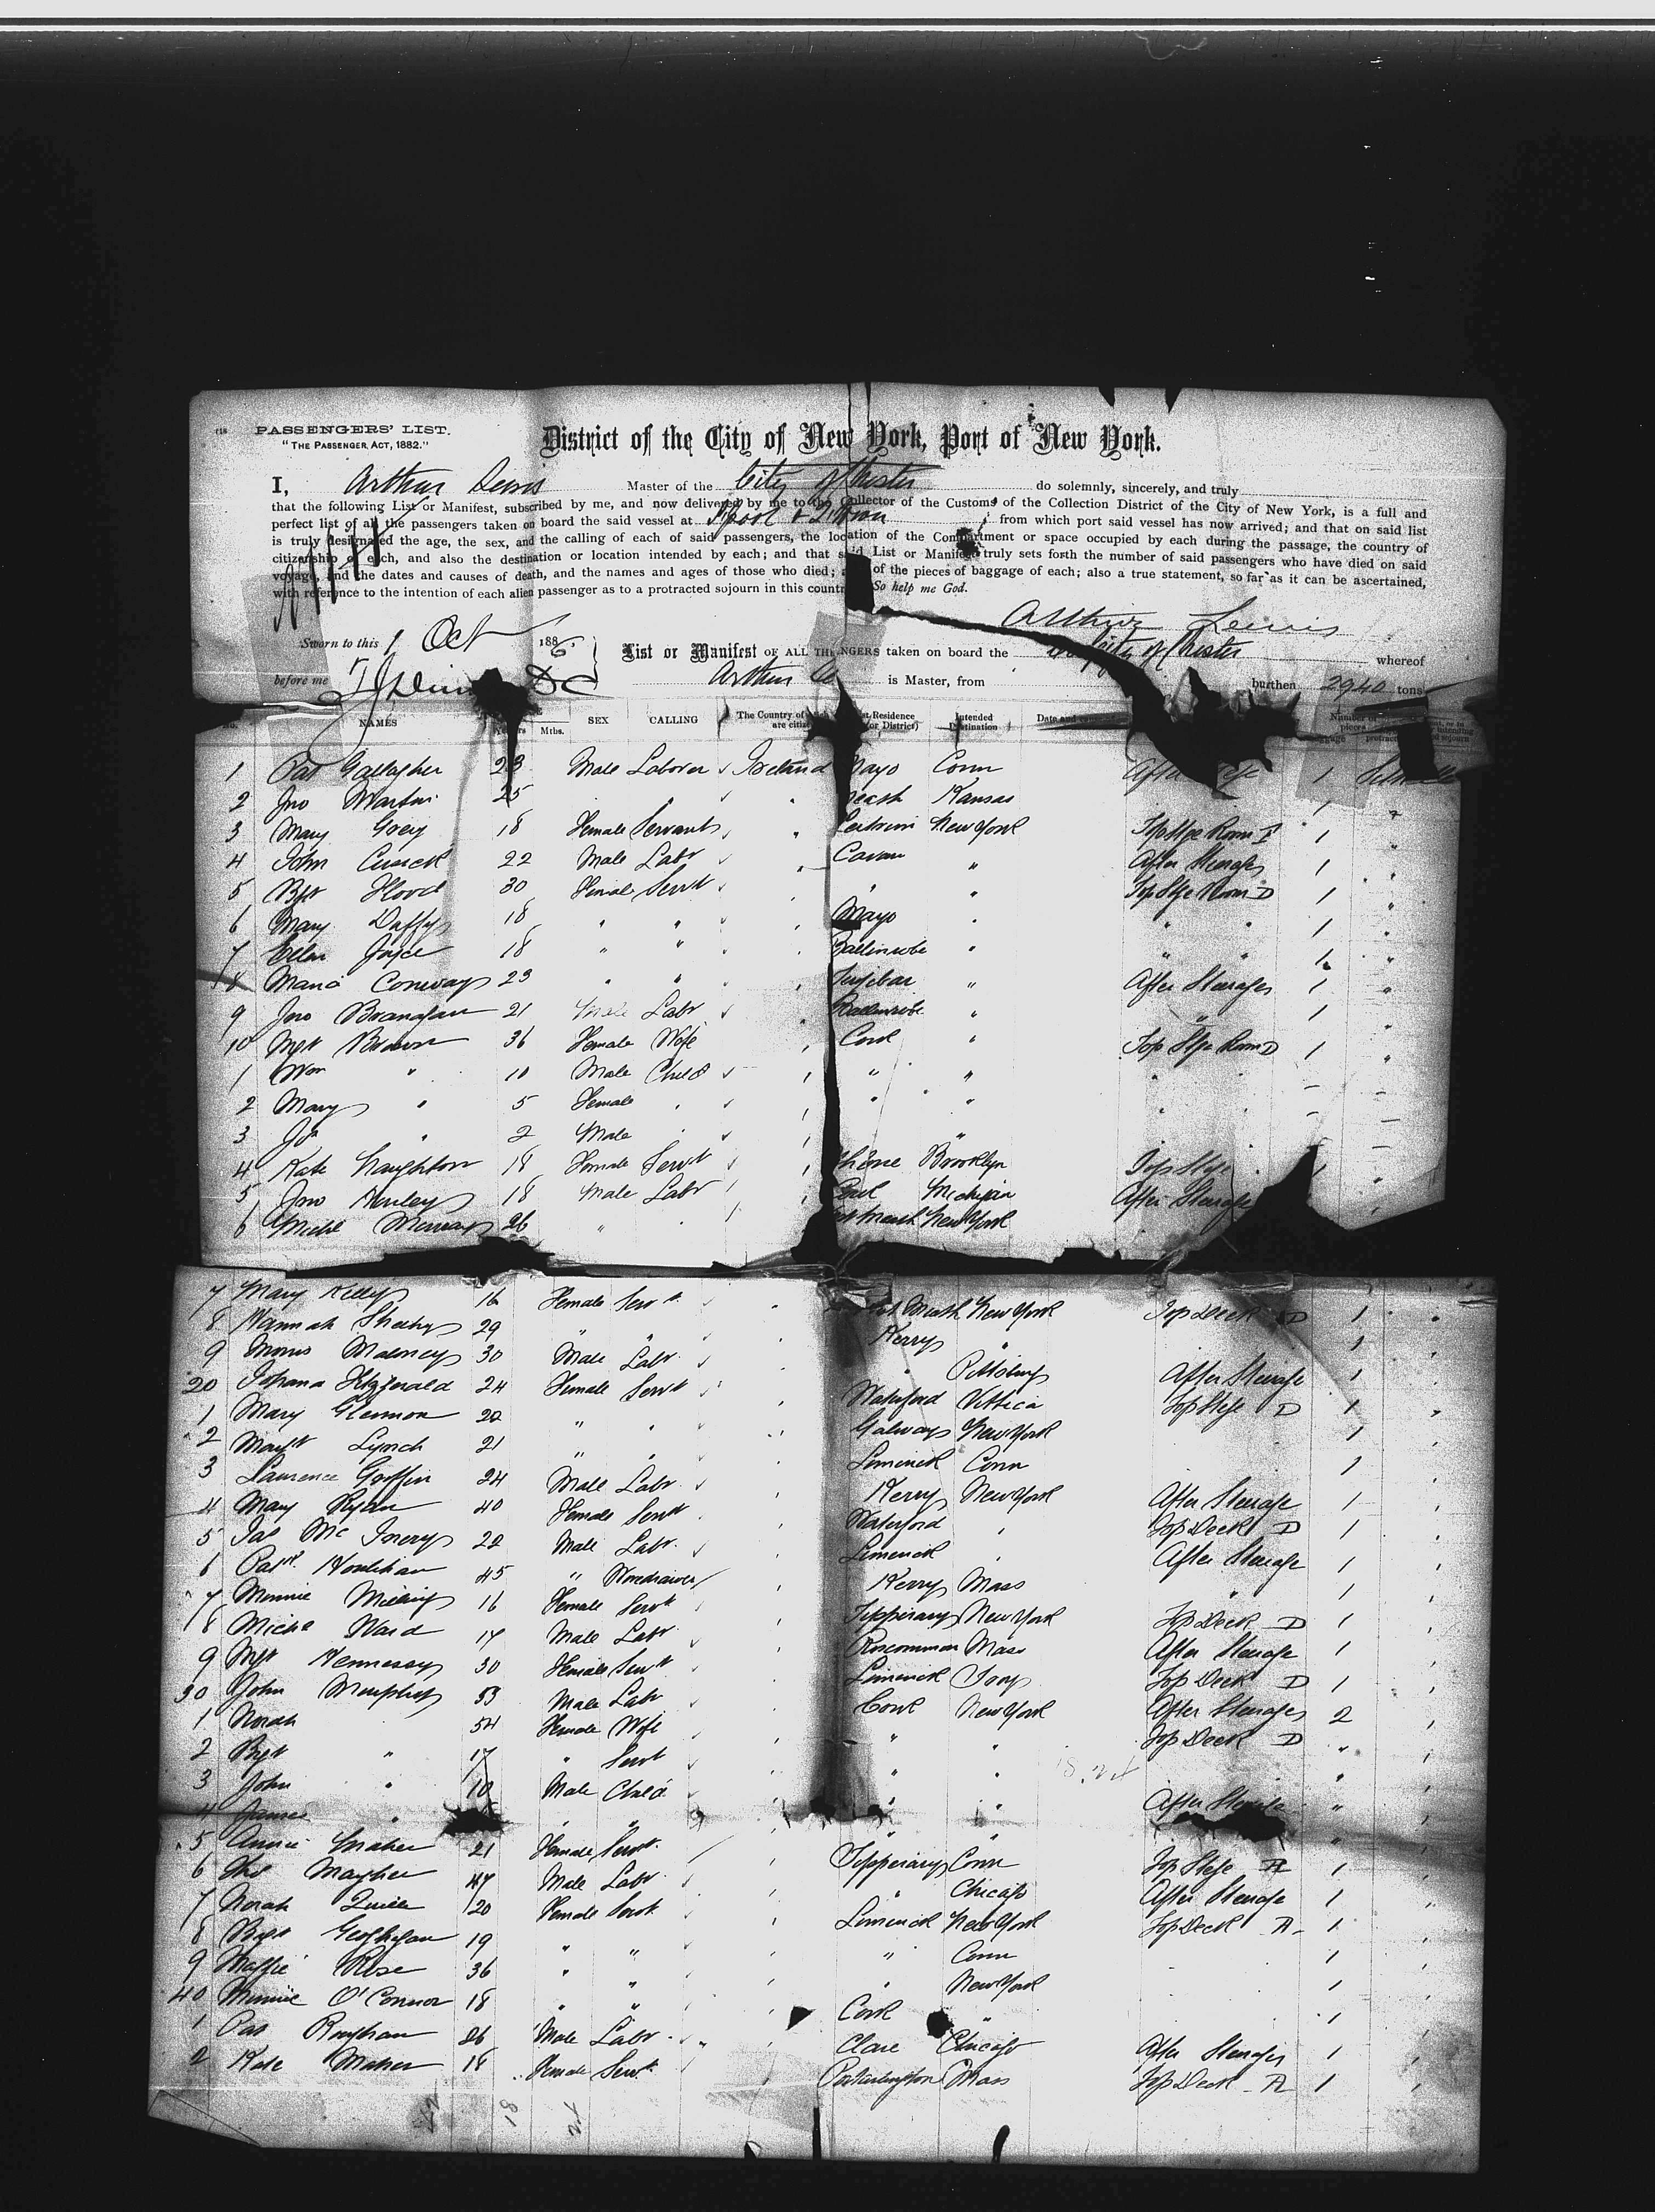 PASSENGERS' LIST.
"THE PASSENGER ACT, 1882."
District of the City of New York, Port of New York.
I, Arthur Lewis Master of the City of Chester do solemnly, sincerely, and truly
that the following List or Manifest, subscribed by me, and now delivered by me to the Collector of the Customs of the Collection District of the City of New York, is a full and
perfect list of all the passengers taken on board the said vessel at L'pool & Q'town from which port said vessel has now arrived; and that on said list
is truly designated the age, the sex, and the calling of each of said passengers, the location of the Compartment or space occupied by each during the passage, the country of
citizenship of each, and also the destination or location intended by each; and that said List or Manifest truly sets forth the number of said passengers who have died on said
voyage, and the dates and causes of death, and the names and ages of those who died; of the pieces of baggage of each; also a true statement, so far as it can be ascertained,
with reference to the intention of each alien passenger as to a protracted sojourn in this country So help me God.
Arthur Lewis
Sworn to this 1 Oct 1886
List or Manifest OF ALL THE NGERS taken on board the City of Chester whereof
before me Arthur is Master, from burthen 2940 tons
NAMES Years Mths. SEX CALLING The Country of are citize Residence or District) Intended Destination Date and Number of pieces
1 Pat Gallagher 23 Male Laborer Ireland Mayo Conn 1
2 Jno Martin 25 " Meath Kansas 1
3 Mary Goey 18 Female Servant " Leitrim New York Top Stge Room F 1
4 John Cusick 22 Male Labr " Cavan " After Steerage 1
5 Bgt Flood 30 Female Servt " " Top Stge Room D 1
6 Mary Duffy 18 " " Mayo " " " 1
7 Ellen Joyce 18 " " Ballinrobe " " " 1
8 Maria Conway 23 " " " After Steerage 1
9 Jno Branagan 21 Male Labr Ballinrobe " " 1
10 Mgt Brown 36 Female Wife Cork " Top Stge Room D 1
1 Wm " 10 Male Child " " "
2 Mary " 5 Female " " "
3 Jno " 2 Male " "
4 Kate Naughton 18 Female Servt Brooklyn Top Stge 1
5 Jno Hurley 18 Male Labr Cork Michigan After Steerage
6 Michl Murray 26 " " Meath New York
7 Mary Kelly 16 Female Servt Meath New York Top Deck D 1
8 Hannah Sheehy 29 " " Kerry " 1
9 Morris Maloney 30 Male Labr " Pittsburg After Steerage 1
20 Johana Fitzgerald 24 Female Servt Waterford Uttica Top Stge D 1
1 Mary Glennon 22 " " Galway New York 1
2 Magt Lynch 21 " " Limerick Conn 1
3 Laurence Griffin 24 Male Labr Kerry New York After Steerage 1
4 Mary Ryan 40 Female Servt Waterford " Top Deck D 1
5 Jas Mc Inery 22 Male Labr Limerick " After Steerage 1
6 Patk Houlihan 45 " Kerry Mass " 1
7 Minnie 16 Female Servt Tipperary New York Top Deck D 1
8 Michl Ward 17 Male Labr Roscommon Mass After Steerage 1
9 Mgt Hennessy 30 Female Servt Limerick Top Deck D 1
30 John Murphy 53 Male Labr Cork New York After Steerage 2
1 Norah 54 Female Wife " " Top Deck D "
2 Bgt " 17 " Servt " " "
3 John " 10 Male Child " " After Steerage "
4 James " " " " " "
5 Annie Maher 21 Female Servt Tipperary Conn Top Stge A 1
6 Ths Maugher 47 Male Labr " Chicago After Steerage 1
7 Norah Quille 20 Female Servt Limerick New York Top Deck A 1
8 Bgt Geoghegan 19 " " " Conn 1
9 Maggie Rose 36 " " " New York 1
40 Minnie O'Connor 18 " " Cork " 1
1 Pat Roughan 26 Male Labr Clare Chicago After Steerage 1
2 Kate Maher 18 Female Servt Portarlington Mass Top Deck A 1